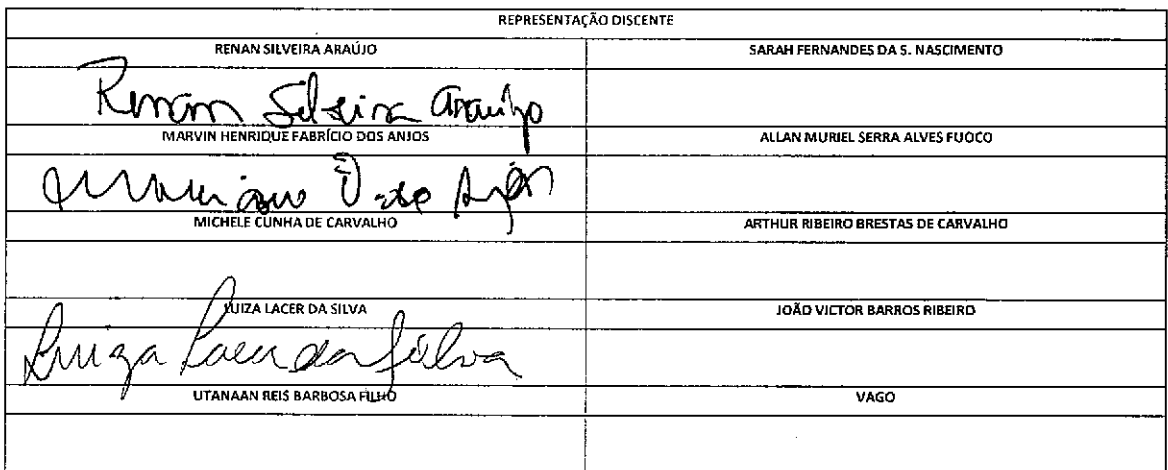 REPRESENTAÇÃO DISCENTE
RENAN SILVEIRA ARAÚJO
SARAH FERNANDES DA S. NASCIMENTO
Renan Silveira Araújo
MARVIN HENRIQUE FABRÍCIO DOS ANJOS
ALLAN MURIEL SERRA ALVES FUOCO
MICHELE CUNHA DE CARVALHO
ARTHUR RIBEIRO BRESTAS DE CARVALHO
LUIZA LACER DA SILVA
JOÃO VICTOR BARROS RIBEIRO
Luiza Lacer da Silva
UTANAAN REIS BARBOSA FILHO
VAGO